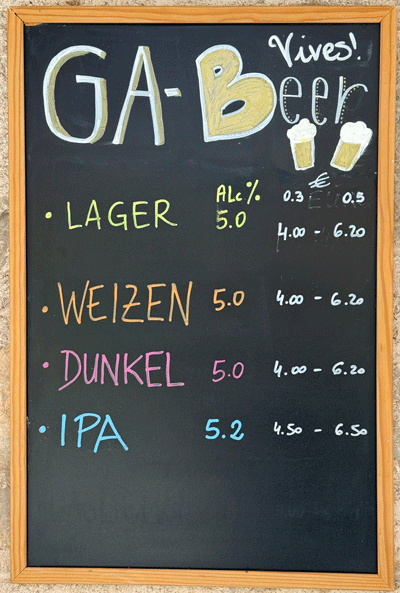 Vives!
GA-Beer
€
ALC% 0.3 0.5
• LAGER 5.0 4.00 - 6.20
• WEIZEN 5.0 4.00 - 6.20
• DUNKEL 5.0 4.00 - 6.20
• IPA 5.2 4.50 - 6.50